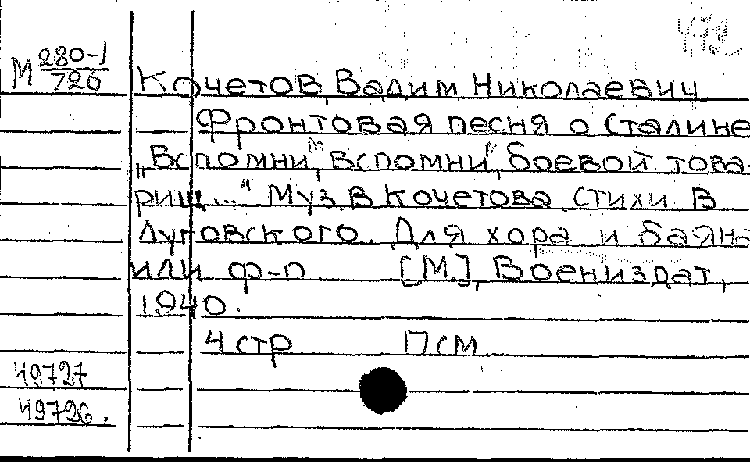 472
М 280-1
726
Кочетов, Вадим Николаевич
Фронтовая песня о Сталине
„Вспомни, вспомни, боевой това-
рищ..." Муз В Кочетова Стихи В
Луговского. Для хора и баяна
или ф-п [М], Воениздат,
1940.
4 стр 17 см
49727
49726.